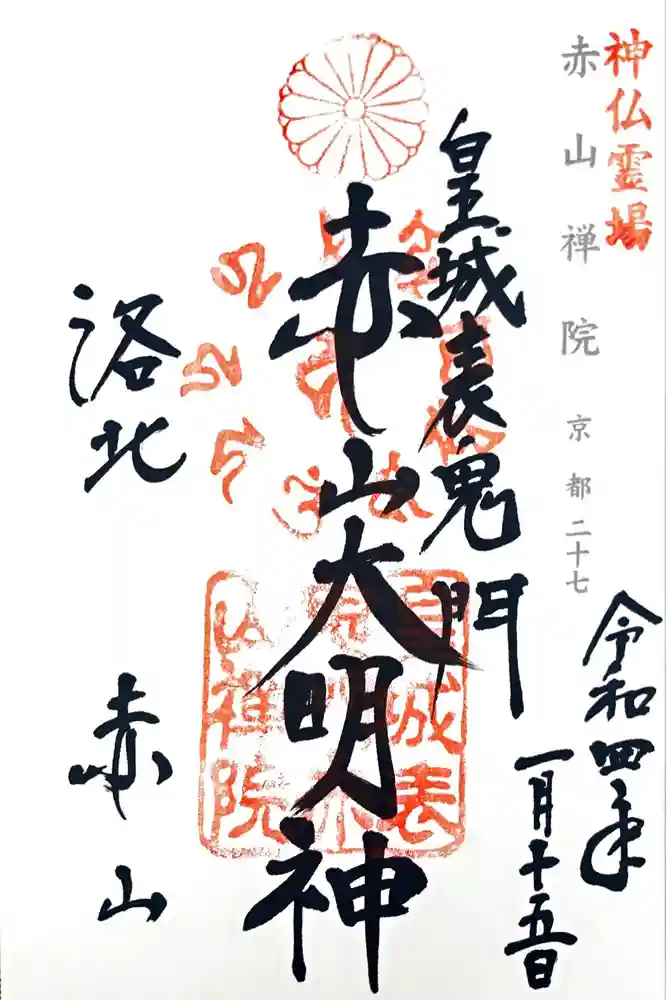 神仏霊場
赤山禅院 京都二十七
令和四年
一月十五日
皇城表鬼門
赤山大明神
洛北
赤山